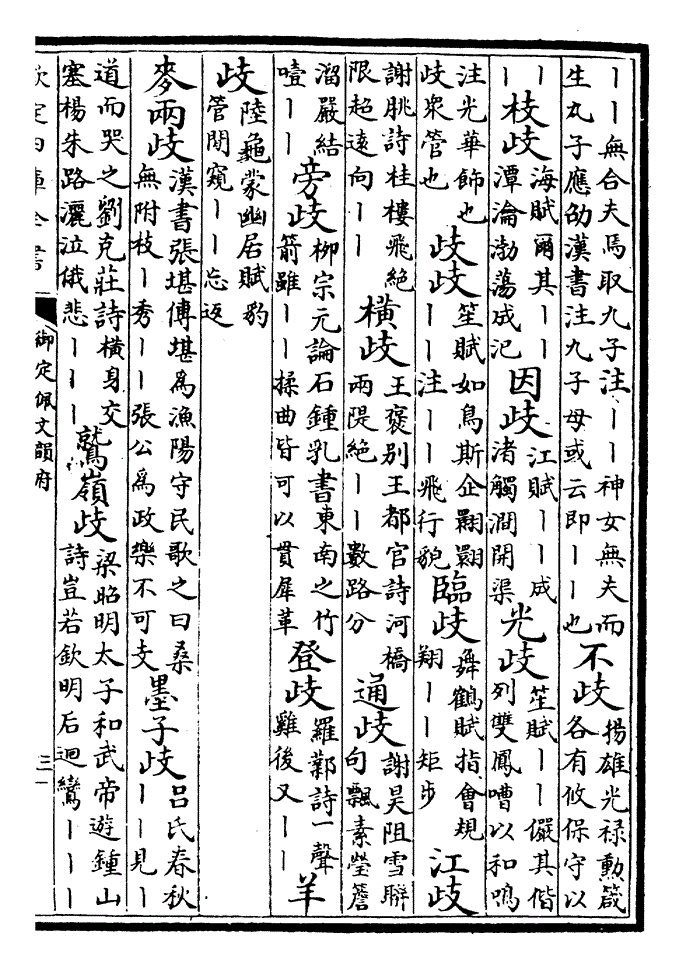 丨丨無合夫焉取九子注丨丨神女無夫而
生九子應劭漢書注九子母或云即丨丨也
不歧
揚雄光禄勲箴
各有攸保守以
丨
丨
枝歧
海賦爾其丨丨
潭淪渤蕩成汜
因歧
江賦丨丨成
渚觸澗開渠
光歧
笙賦丨丨儼其偕
列雙鳳嘈以和鳴
注光華飾也
歧衆管也
歧歧
笙賦如鳥斯企翾翾
丨丨注丨丨飛行貌
臨歧
舞鶴賦指會規
翔丨丨矩步
江歧
謝朓詩桂樓飛絶
限超遠向丨丨
橫歧
王襃别王都官詩河橋
兩隄絶丨丨數路分
通歧
謝昊阻雪聨
句飄素瑩簷
溜嚴結
噎丨丨
旁歧
柳宗元論石鍾乳書東南之竹
箭雖丨丨揉曲皆可以貫犀革
登歧
羅鄴詩一聲
雞後又丨丨
羊
歧
陸龜蒙幽居賦豹
管閒窺丨丨忘返
麥兩歧
漢書張堪傳堪為漁陽守民歌之曰桑
無附枝丨秀丨丨張公為政樂不可支
墨子歧
呂氏春秋
丨丨見丨
道而哭之劉克莊詩橫身交
塞楊朱路灑泣俄悲丨丨丨
鷲嶺歧
梁昭明太子和武帝遊鍾山
詩豈若欽明后迴鸞丨丨丨
欽定四庫全書
御定佩文韻府
三